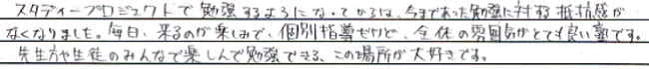 スタディープロジェクトで勉強するようになってからは、今まであった勉強に対する抵抗感が
なくなりました。毎日、来るのが楽しみで、個別指導だけど、全体の雰囲気がとても良い塾です。
先生方や生徒のみんなで楽しんで勉強できる、この場所が大好きです。